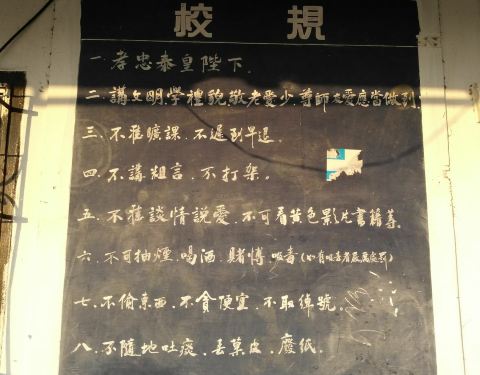 校規
一.孝忠泰皇陛下.
二.講文明.學禮貌.敬老愛少.尊師友愛應當做到.
三.不准曠課.不遲到早退.
四.不講粗言.不打架。
五.不准談情說愛.不可看黃色影片書籍等.
六.不可抽煙.喝酒.賭博.吸毒(如有吸毒者嚴厲處罰)
七.不偷東西.不貪便宜.不取綽號.
八.不隨地吐痰.丟菓皮.廢紙.